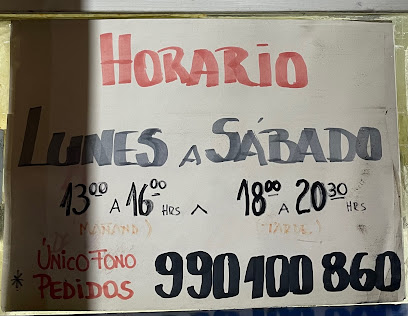 HORARIO
LUNES A SÁBADO
13⁰⁰ A 16⁰⁰ HRS ^ 18⁰⁰ A 20³⁰ HRS
(MAÑANA) (TARDE)
ÚNICO FONO
* PEDIDOS 990400860